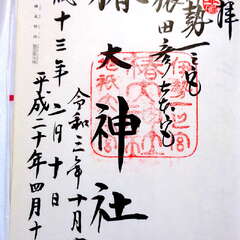 拝
勢一之宮
猿田彦大本宮
伊勢一之宮
大神社
令和三年十月
平成二十年四月十
成十三年二月十日